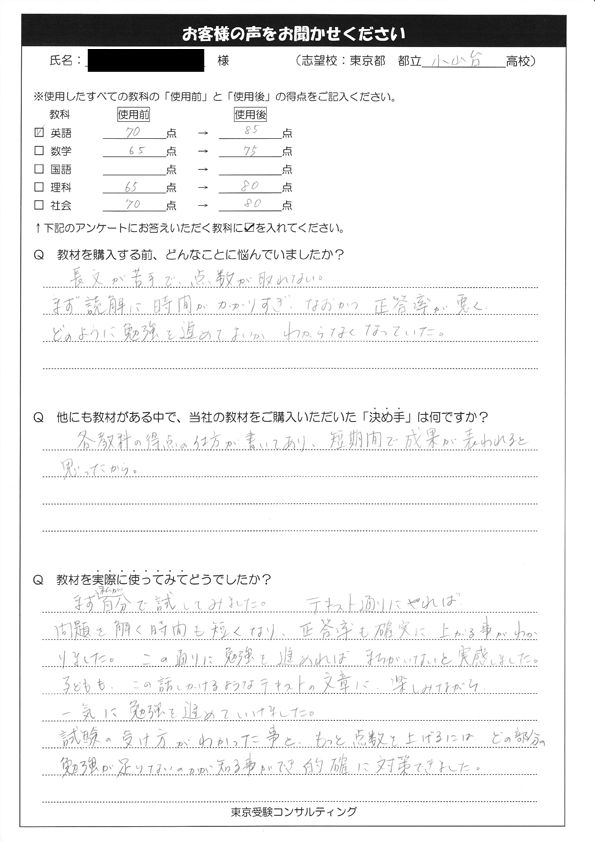 お客様の声をお聞かせください
氏名： 様 （志望校：東京都 都立 小山台 高校）
※使用したすべての教科の「使用前」と「使用後」の得点をご記入ください。
教科 使用前 使用後
☑ 英語 70 点 → 85 点
□ 数学 65 点 → 75 点
□ 国語 点 → 点
□ 理科 65 点 → 80 点
□ 社会 70 点 → 80 点
↑下記のアンケートにお答えいただく教科に☑を入れてください。
Q 教材を購入する前、どんなことに悩んでいましたか？
長文が苦手で、点数が取れない。
まず読解に時間がかかりすぎ、なおかつ正答率が悪く、
どのように勉強を進めてよいか わからなくなっていた。
Q 他にも教材がある中で、当社の教材をご購入いただいた「決め手」は何ですか？
各教科の得点の仕方が書いてあり、短期間で成果が表われると
思ったから。
Q 教材を実際に使ってみてどうでしたか？
まず自分で試してみました。 テキスト通りにやれば
問題を解く時間も短くなり、正答率も確実に上がる事がわか
りました。 この通りに勉強を進めれば まちがいないと実感しました。
子どもも、この話しかけるようなテキストの文章に、楽しみながら
一気に勉強を進めていけました。
試験の受け方がわかった事と、もっと点数を上げるには どの部分の
勉強が足りないのかが知る事ができ 的確に対策できました。
東京受験コンサルティング